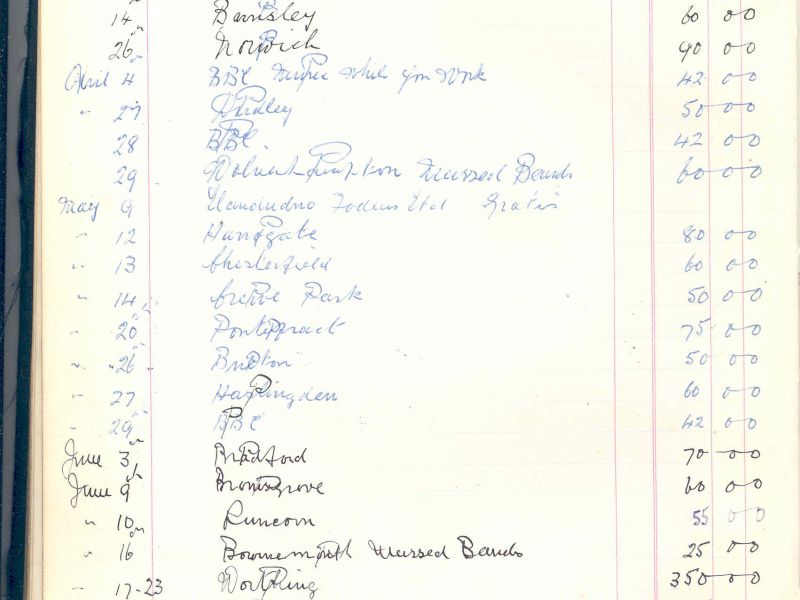 14 Barnsley 60 00
26 Norwich 90 00
April 4 BBC Music While You Work 42 00
" 27 Dudley 50 00
28 BBC. 42 00
29 Wolverhampton Massed Bands 60 00
May 9 Llandudno Fodens Ltd Gratis
" 12 Harrogate 80 00
" 13 Chesterfield 60 00
" 14 Crewe Park 50 00
" 20 Pontefract 75 00
" 26 50 00
" 27 Haslingden 60 00
" 29 BBC 42 00
June 3 Bradford 70 00
June 9 Bromsgrove 60 00
" 10 Runcorn 55 00
" 16 Bournemouth Massed Bands 25 00
" 17-23 Worthing 350 00